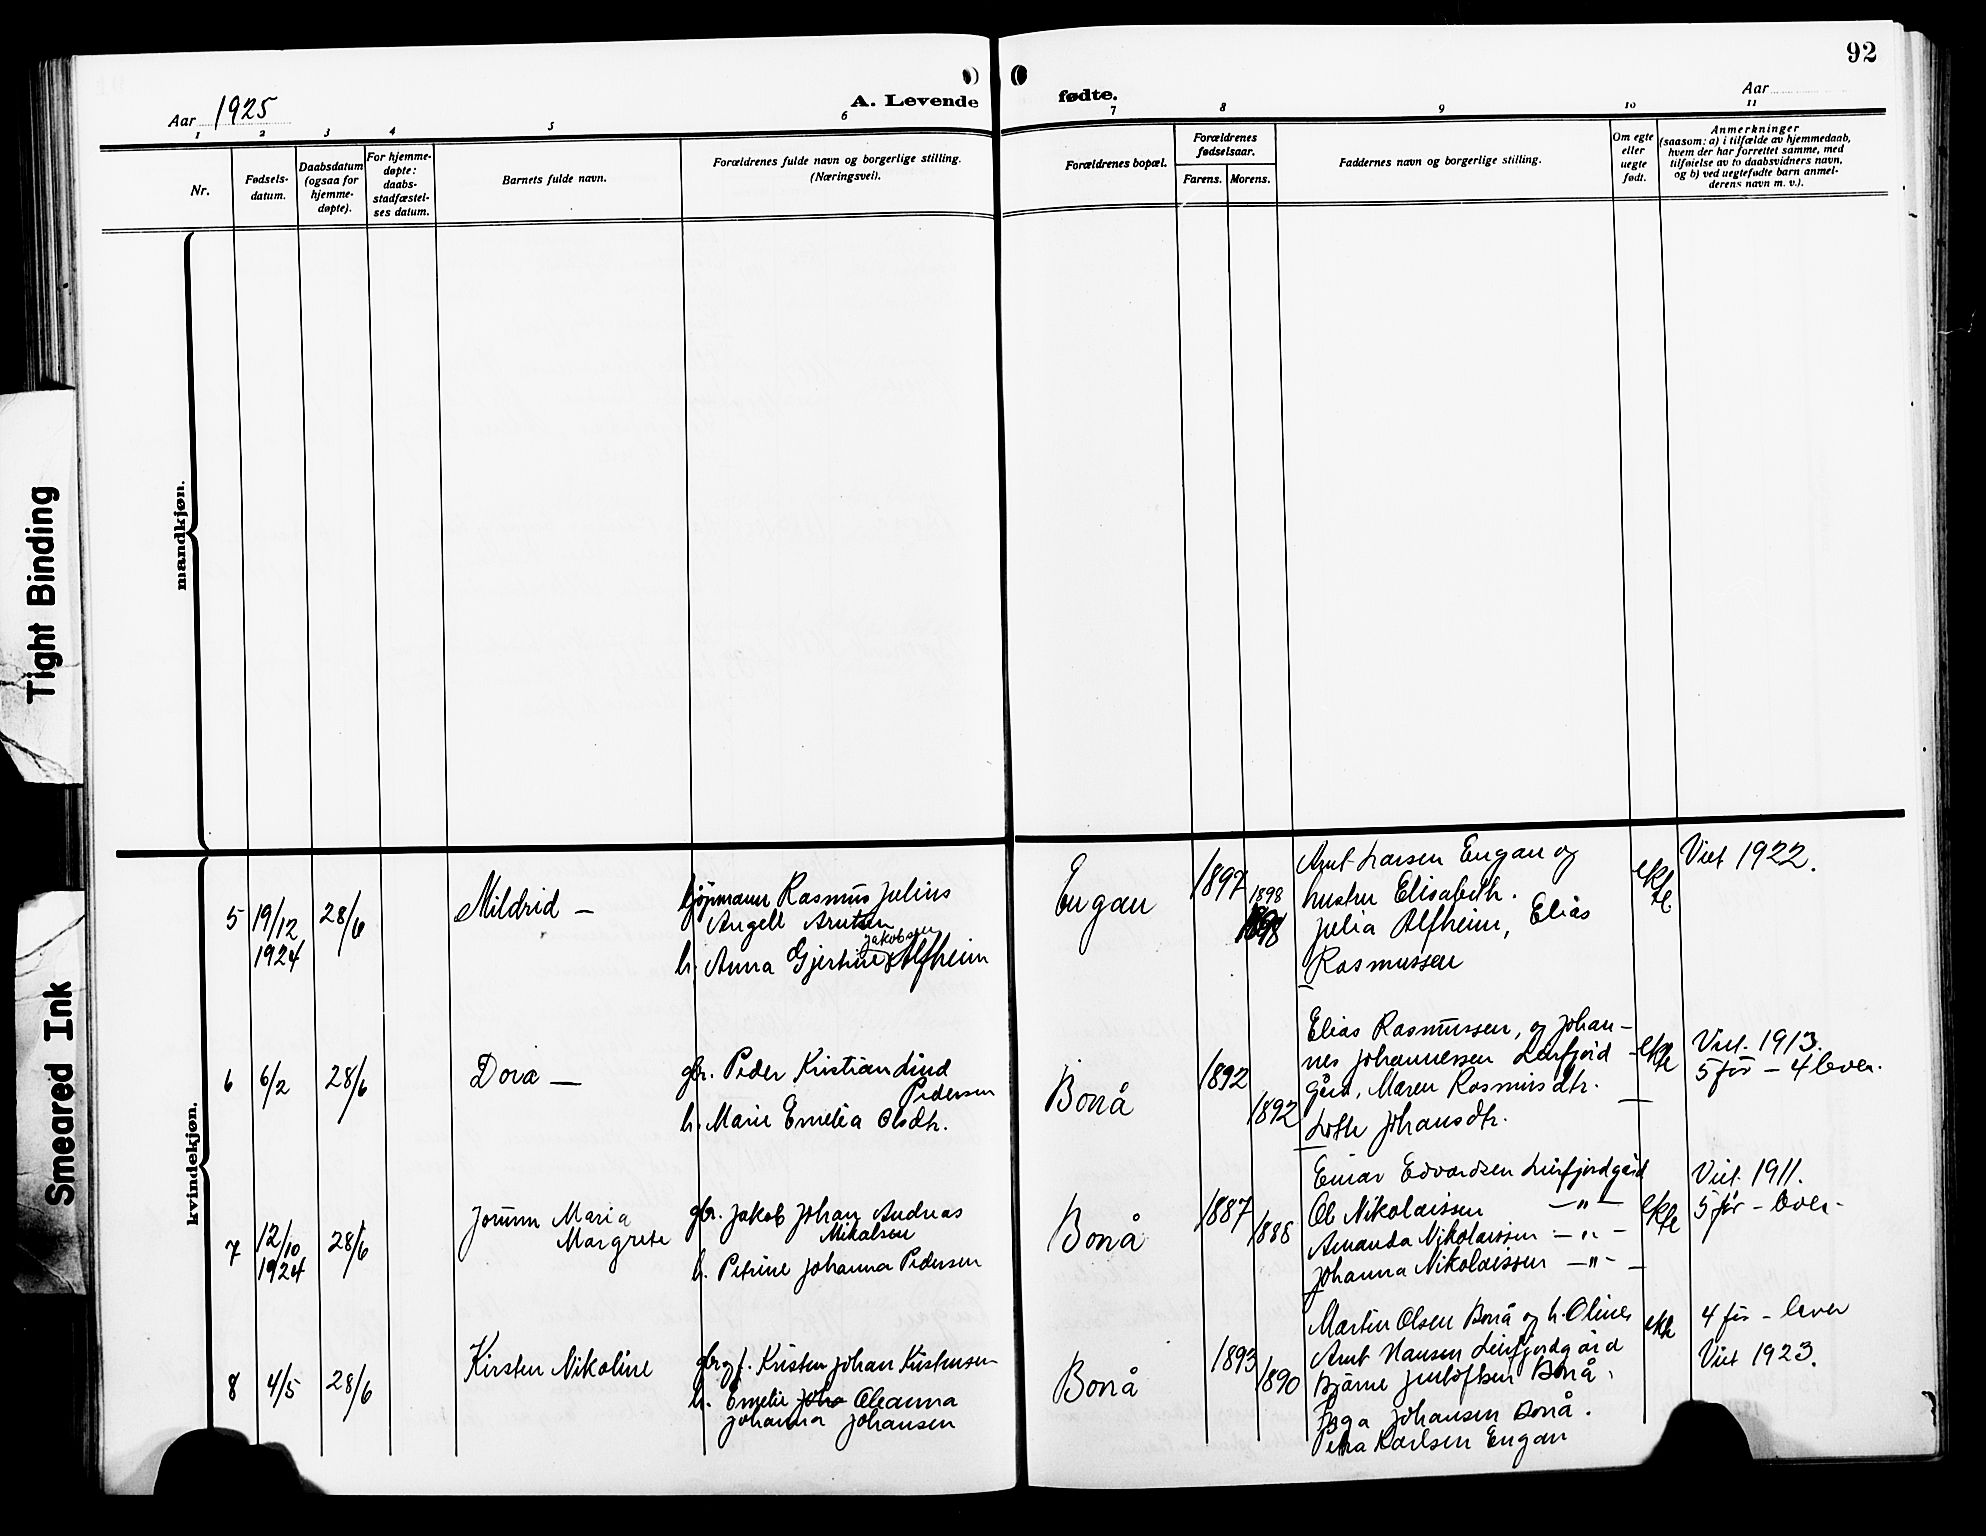 92
Aar 1925
A. Levende fødte.
Aar
1 2 3 4 5 6 7 8 9 10 11
Nr.
Fødsels-
datum.
Daabsdatum
(ogsaa for
hjemme-
døpte).
For hjemme-
døpte:
daabs-
stadfæstel-
ses datum.
Barnets fulde navn.
Forældrenes fulde navn og borgerlige stilling.
(Næringsvei).
Forældrenes bopæl.
Forældrenes
fødselsaar.
Farens. Morens.
Faddernes navn og borgerlige stilling.
Om egte
eller
uegte
født.
Anmerkninger
(saasom: a) i tilfælde av hjemmedaab,
hvem der har forrettet samme, med
tilføielse av to daabsvidners navn,
og b) ved uegtefødte barn anmel-
derens navn m. v.).
mandkjøn.
kvindekjøn.
5 19/12
1924
28/6
Mildrid —
Rasmus Julius
Angell Arntsen
Jakobsen
h. Anna Gjertine Alfheim
Engan
1897
1898
1898
Arnt Larsen Engan og
hustru Elisabeth.
Julia Alfheim, Elias
Rasmussen
ekte
Viet 1922.
6 6/2 28/6
Dora —
gbr. Peder Kristian Lind
Pedersen
h. Marie Emelia Olsdtr.
Bonå
1892
1892
Elias Rasmussen, og Johan-
nes Johannessen Leirfjord-
gård, Maren Rasmusdtr.
Lotte Johansdtr.
ekte
Viet. 1913.
5 før — 4 lever.
7 12/10
1924
28/6
Jorunn Maria
Margrete
gbr. Jakob Johan Andreas
Mikalsen
h. Petrine Johanna Pedersen
Bonå
1887
1888
Einar Edvardsen Leirfjordgård
Ole Nikolaissen —"—
Amanda Nikolaissen —"—
Johanna Nikolaissen —"—
ekte
Viet. 1911.
5 før — lever.
8 4/5 28/6
Kirsten Nikoline
Kristen Johan Kristensen
h. Emelie Oleanna
Johanna Johansen
Bonå
1893
1890
Martin Olsen Bonå og h. Oline
Arnt Hansen Leirfjordgård
Bjarne Bonå,
Inga Johansen Bonå.
Petra Karlsen Engan
ekte
4 før — lever
Viet 1923.
Tight Binding
Smeared Ink